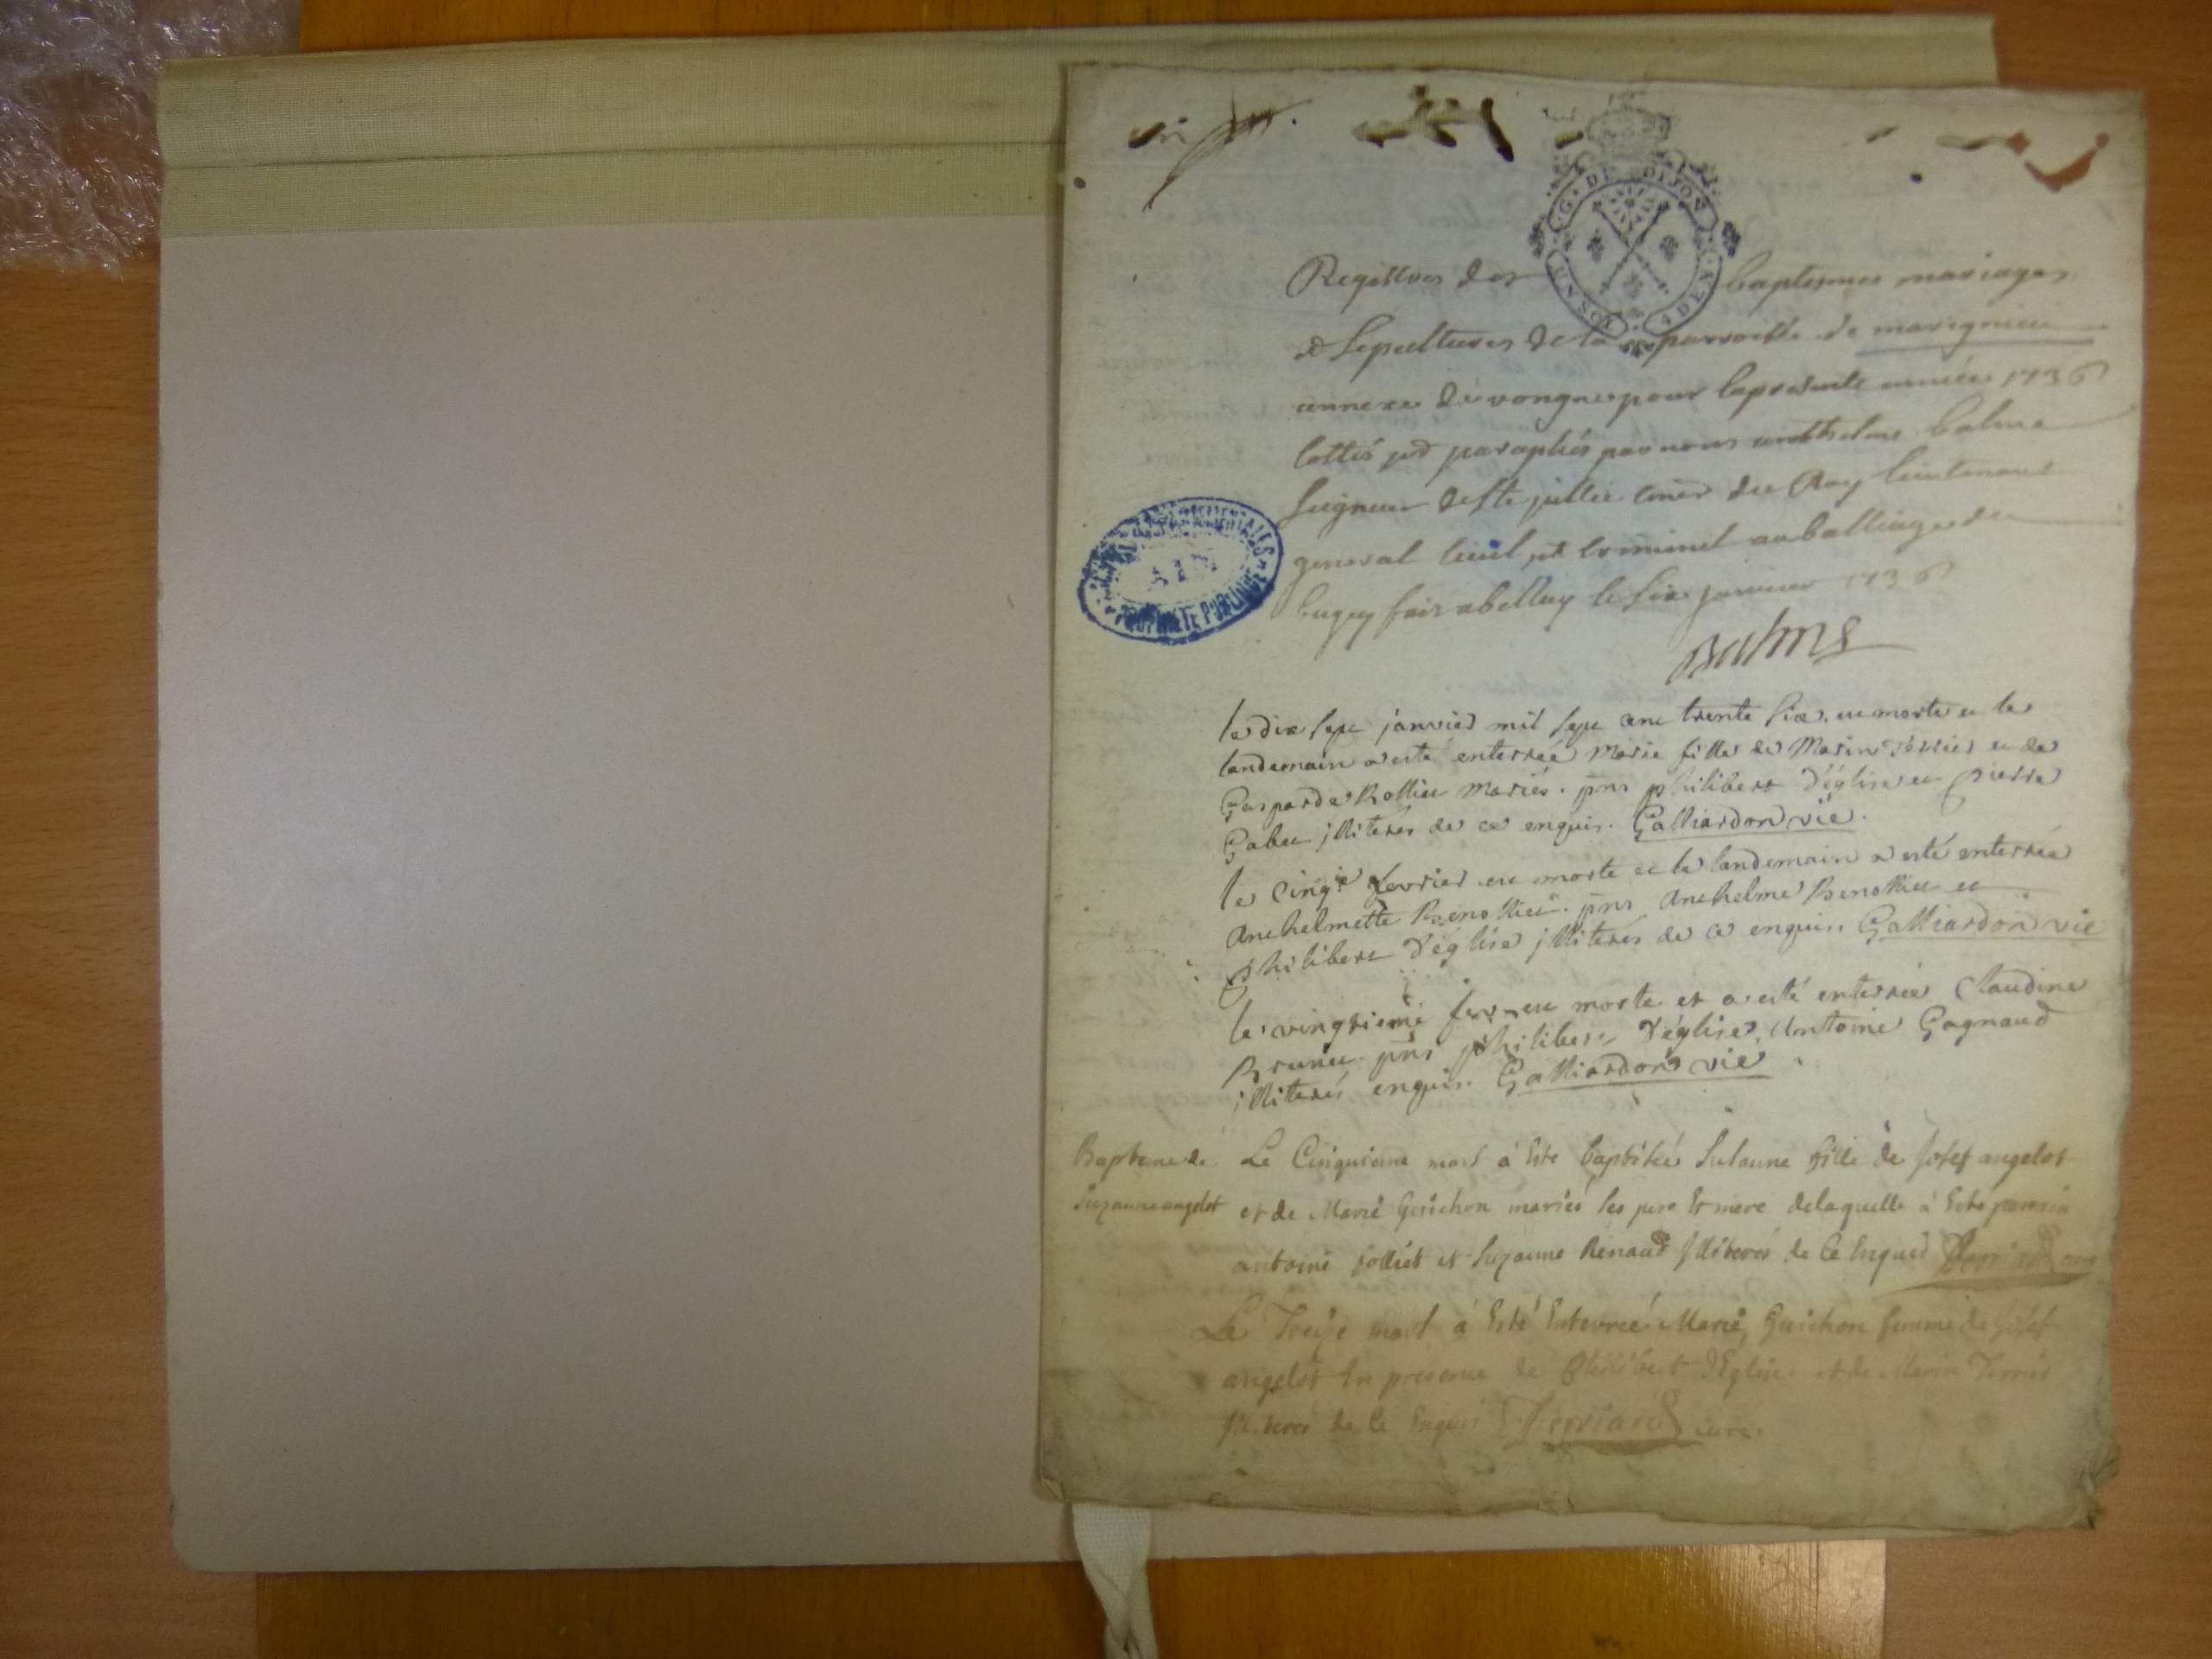 G. DE DIJON
UN SOL 4 DEN
Registres des baptesmes mariages
et Sepultures de la parroisse de marignieu
annexe de vongnes pour la presente année 1736
cottés et paraphés par nous anthelme balme
seigneur de ste jullie coner du Roy lieutenant
general civil et criminel au balliage de
bugey fait a belley le six janvier 1736
Balme
PROPRIETE PUBLIQUE
le dix sept janvier mil sept cent trente six. est morte et le
landemain a esté enterrée Marie fille de Marin Terrier et de
Gasparde Rollier mariés. pns philibert d'église et pierre
Gabet illiterés de ce enquis. Galliardon vic.
le cinqe fevrier est morte et le landemain a esté enterrée
Anthelmette Benollier. pns Anthelme Benollier et
philibert d'église illiterés de ce enquis. Galliardon vic
le vingtieme fevr est morte et a esté enterrée Claudine
Brunet. pns philibert d'église, Antoine Gagnaud
illiterés enquis. Galliardon vic
Bapteme de
Suzanne angelot
Le Cinquieme mars à Este baptisée Susanne fille de Josef angelot
et de Marie Guichon mariés ses pere Et mere de laquelle à Esté parrain
antoine jolliet et Suzanne Renaud Illiterés de Ce Enquis
Le Treize mars à Esté Enterreé Marie Guichon femme de Josef
angelot En presence de Philibert d'Eglise et de Marin Terrier
Illiterés de Ce Enquis curé